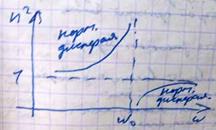 n²
норм.
дисперсия
1
норм.
дисперсия
ω₀
ω